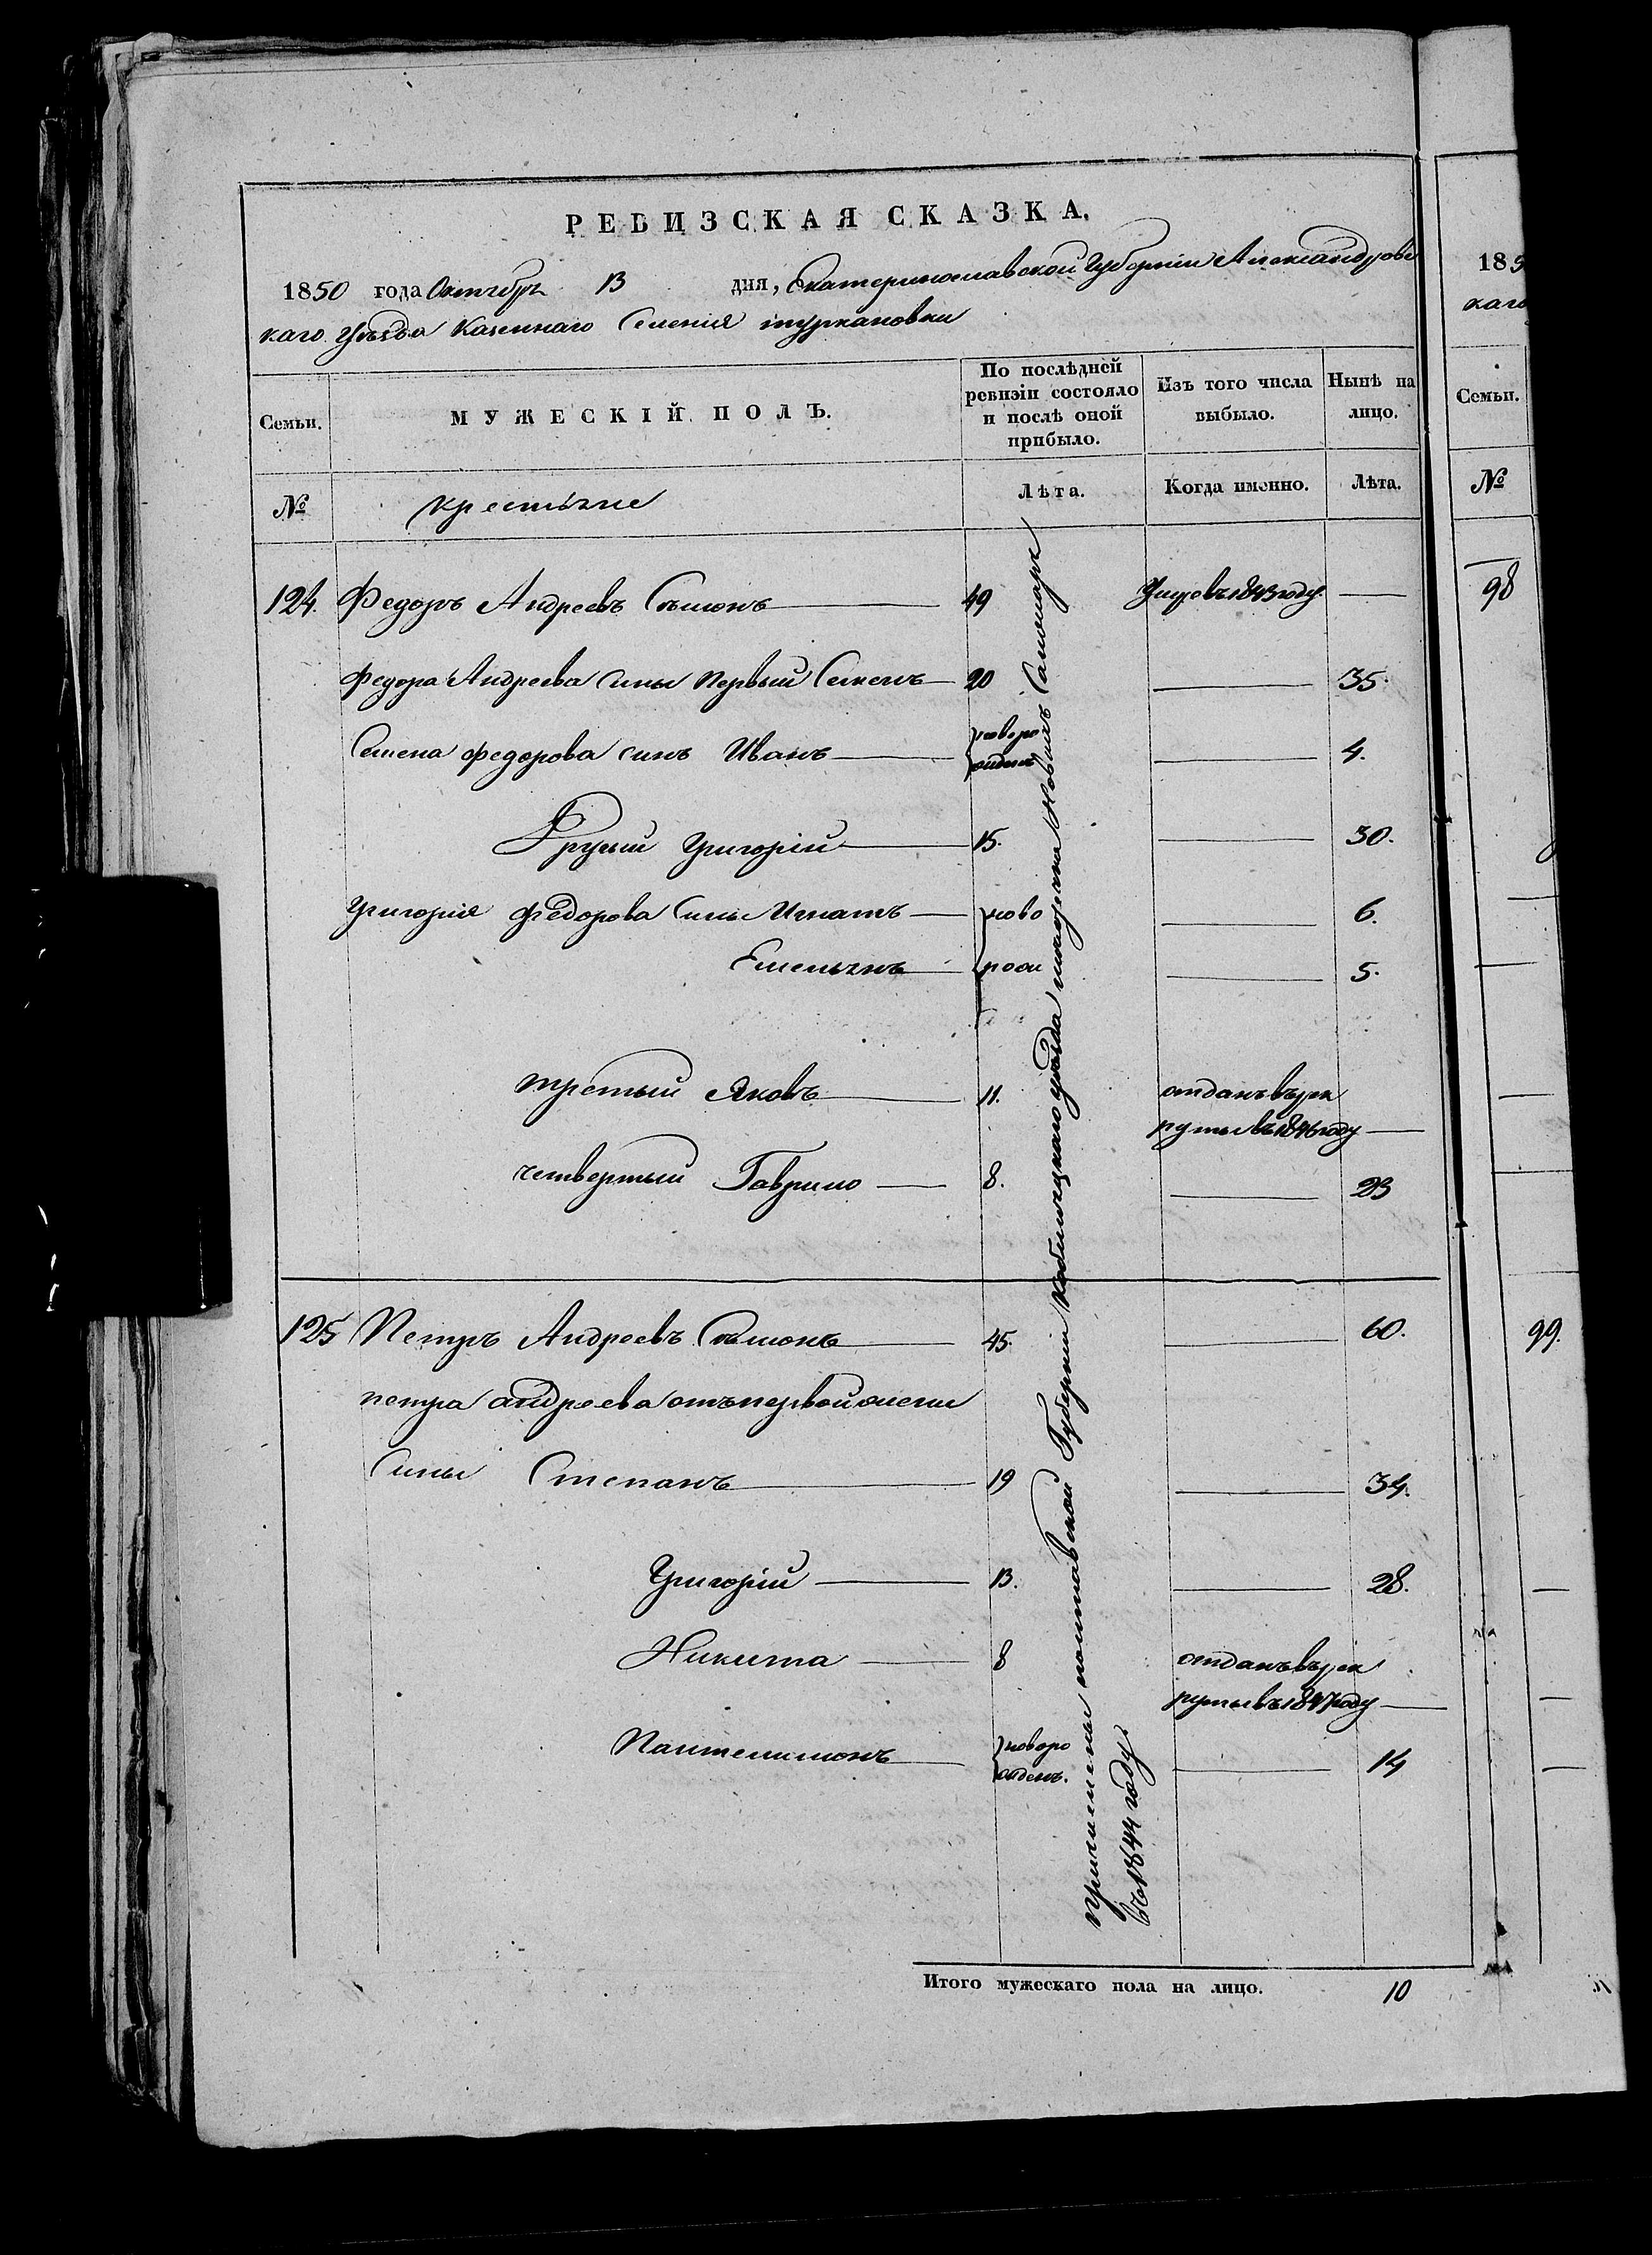 РЕВИЗСКАЯ СКАЗКА.
1850 года Октября 13 дня, Екатеринославской Губерніи Александровс
каго Уѣзда Казеннаго Селенія туркановки
Семьи.
МУЖЕСКІЙ ПОЛЪ.
По послѣдней ревизіи состояло и послѣ оной прибыло.
Изъ того числа выбыло.
Нынѣ на лицо.
№
крестьяне
Лѣта.
Когда именно.
Лѣта.
124. Федоръ Андреевъ 49 Умре въ 1843 году. —
Федора Андреева Сины Первый Семенъ 20 — 35.
Семена Федорова синъ Иванъ новоро жденъ — 4.
Другий Григорій 15. — 30.
Григорія Федорова Сины Игнатъ ново — 6.
Емельянъ рож — 5.
третый Яковъ 11. отданъ въ рек
руты въ 1846 году —
четвертый Гаврило 8. — 23
125 Петръ Андреевъ 45. — 60.
петра андреева отъ первой жены
Сины Степанъ 19 — 34.
Григорій 13. — 28.
Никита 8 отданъ въ рек
руты въ 1847 году —
Пантелимонъ новоро жденъ. — 14
причислены полтавской Губерніи Кобиляцкаго уѣзда местечка Новихъ Санжаръ
въ 1844 году.
Итого мужескаго пола на лицо. 10
185
каго
Семьи.
№
98
99.